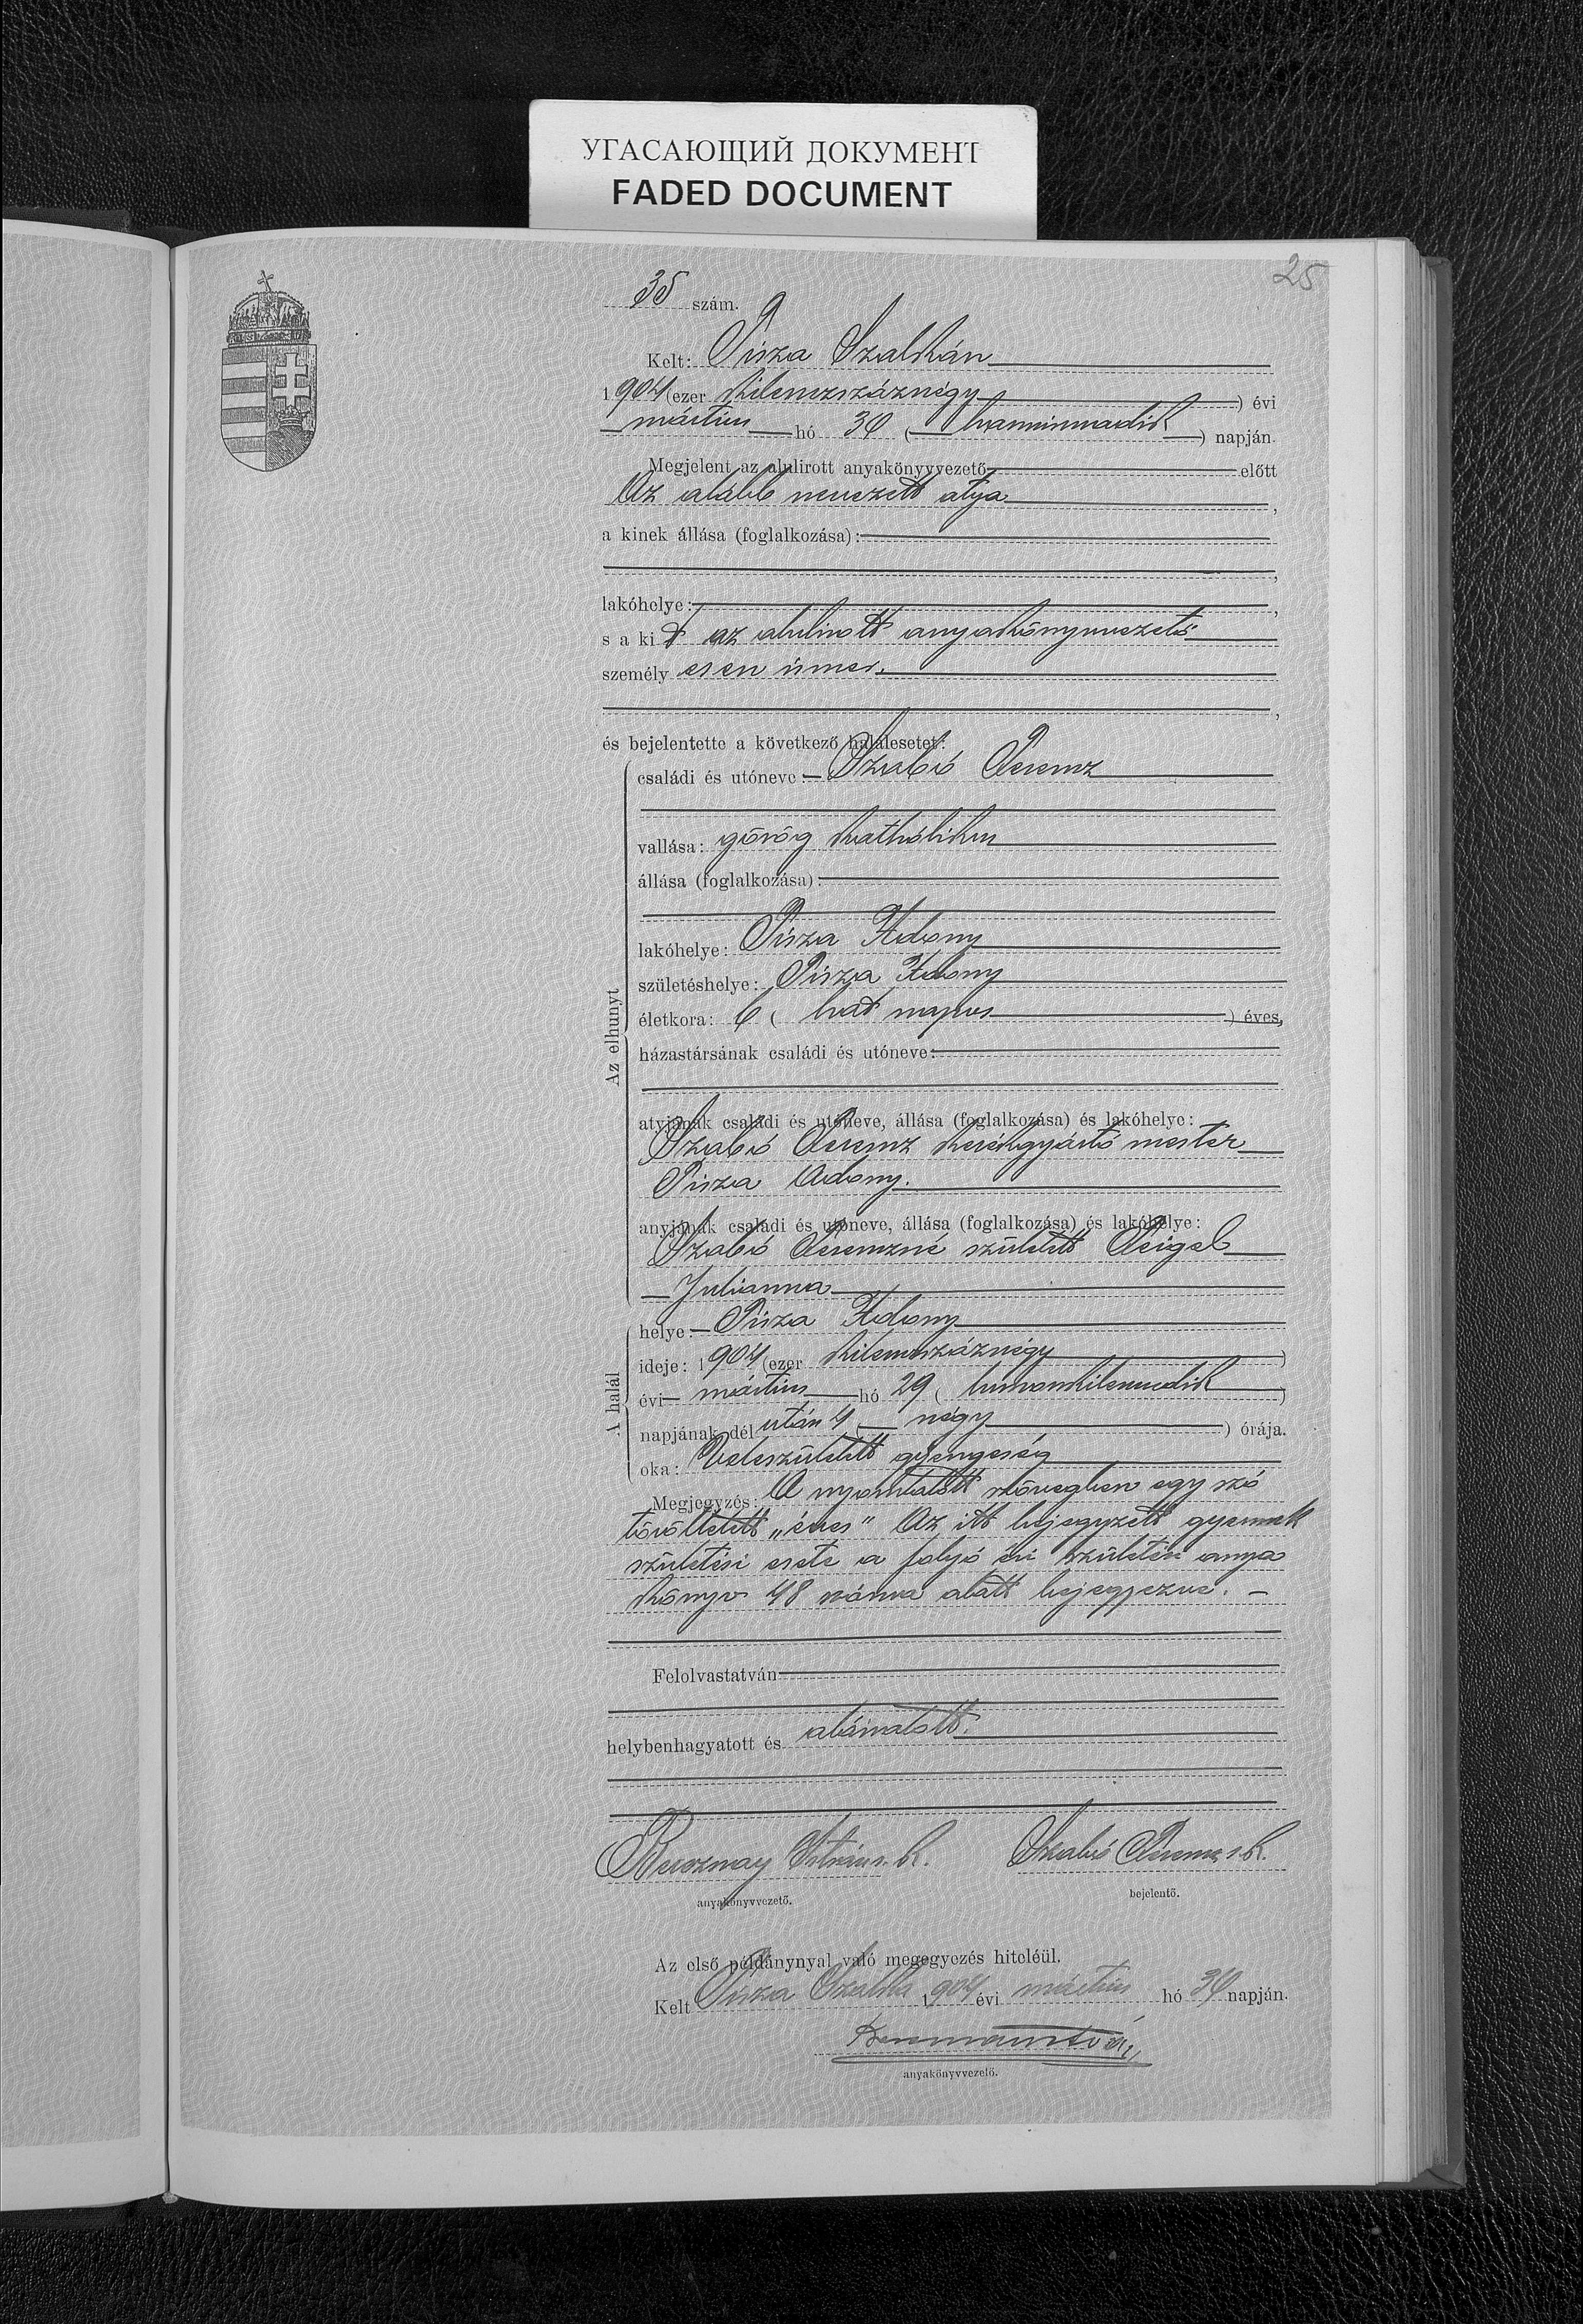 УГАСАЮЩИЙ ДОКУМЕНТ
FADED DOCUMENT
25
35 szám.
Kelt: Tisza Szalkán
1904 (ezer kilenczszáznégy) évi
mártius hó 30 (harminczadik) napján.
Megjelent az alulirott anyakönyvvezető előtt
Az alább nevezett atya,
a kinek állása (foglalkozása):
lakóhelye:
s a kit az alulirott anyakönyvvezető
személyesen ismer.
és bejelentette a következő halálesetet:
Az elhunyt
családi és utóneve: Szabó Ferencz
vallása: görög katholikus
állása (foglalkozása):
lakóhelye: Tisza Adony
születéshelye: Tisza Adony
életkora: 6 (hat napos) éves,
házastársának családi és utóneve:
atyjának családi és utóneve, állása (foglalkozása) és lakóhelye:
Szabó Ferencz kerékgyártó mester
Tisza Adony.
anyjának családi és utóneve, állása (foglalkozása) és lakóhelye:
Szabó Ferenczné született Feigel
Julianna
A halál
helye: Tisza Adony
ideje: 1904 (ezer kilenczszáznégy)
évi mártius hó 29 (huszonkilenczedik)
napjának dél után 4 (négy) órája.
oka: Veleszületett gyengeség
Megjegyzés: A nyomtatott szövegben egy szó
töröltetett „éves" Az itt bejegyzett gyermek
születési esete a folyó évi születési anya
könyv 48 száma alatt bejegyezve. –
Felolvastatván
helybenhagyatott és aláiratott.
István s. k. Szabó Ferencz s. k.
anyakönyvvezető. bejelentő.
Az első példánynyal való megegyezés hiteléül.
Kelt Tisza Szalka 1904 évi mártius hó 30 napján.
anyakönyvvezető.